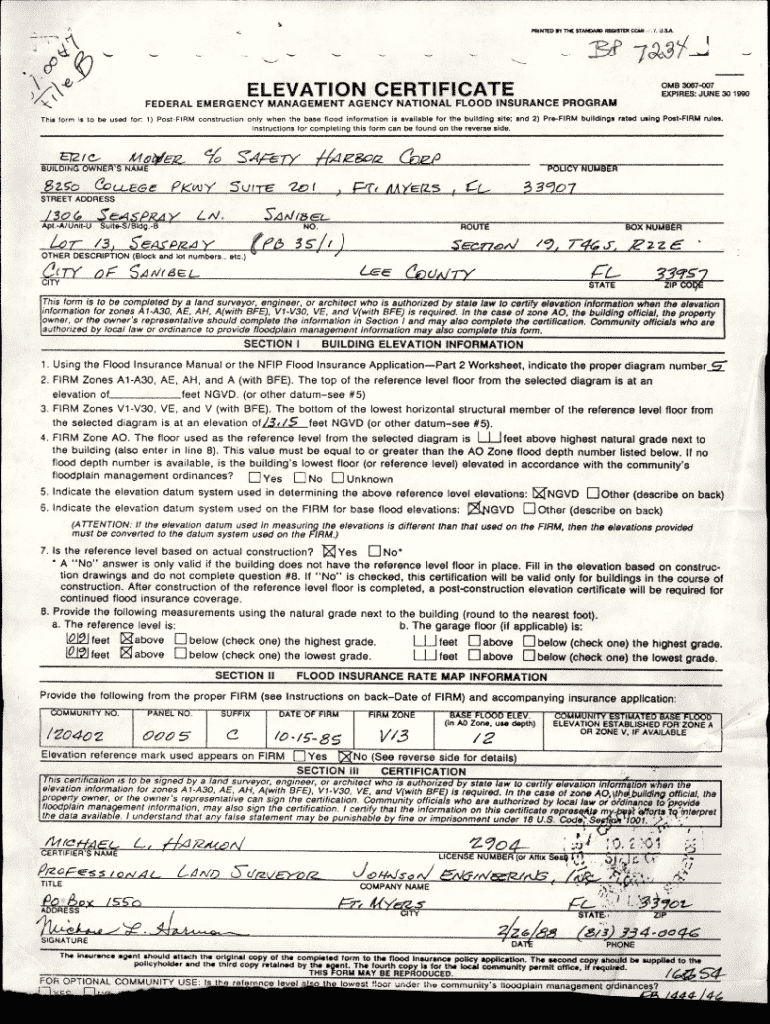 PRINTED BY THE STANDARD REGISTER U.S.A.
BP 7234
File B
ELEVATION CERTIFICATE
OMB 3067-007
EXPIRES: JUNE 30 1990
FEDERAL EMERGENCY MANAGEMENT AGENCY NATIONAL FLOOD INSURANCE PROGRAM
This form is to be used for: 1) Post-FIRM construction only when the base flood information is available for the building site; and 2) Pre-FIRM buildings rated using Post-FIRM rules.
Instructions for completing this form can be found on the reverse side.
ERIC MOWER C/O SAFETY HARBOR CORP
BUILDING OWNER'S NAME POLICY NUMBER
8250 COLLEGE PKWY SUITE 201, FT. MYERS, FL 33907
STREET ADDRESS
1306 SEASPRAY LN. SANIBEL
Apt.-A/Unit-U Suite-S/Bldg.-B NO. ROUTE BOX NUMBER
LOT 13, SEASPRAY (PB 35/1) SECTION 19, T46S, R22E
OTHER DESCRIPTION (Block and lot numbers, etc.)
CITY OF SANIBEL LEE COUNTY FL 33957
CITY STATE ZIP CODE
This form is to be completed by a land surveyor, engineer, or architect who is authorized by state law to certify elevation information when the elevation
information for zones A1-A30, AE, AH, A(with BFE), V1-V30, VE, and V(with BFE) is required. In the case of zone AO, the building official, the property
owner, or the owner's representative should complete the information in Section I and may also complete the certification. Community officials who are
authorized by local law or ordinance to provide floodplain management information may also complete this form.
SECTION I BUILDING ELEVATION INFORMATION
1. Using the Flood Insurance Manual or the NFIP Flood Insurance Application—Part 2 Worksheet, indicate the proper diagram number 5
2. FIRM Zones A1-A30, AE, AH, and A (with BFE). The top of the reference level floor from the selected diagram is at an
elevation of feet NGVD. (or other datum–see #5)
3. FIRM Zones V1-V30, VE, and V (with BFE). The bottom of the lowest horizontal structural member of the reference level floor from
the selected diagram is at an elevation of 13.15 feet NGVD (or other datum–see #5).
4. FIRM Zone AO. The floor used as the reference level from the selected diagram is feet above highest natural grade next to
the building (also enter in line 8). This value must be equal to or greater than the AO Zone flood depth number listed below. If no
flood depth number is available, is the building's lowest floor (or reference level) elevated in accordance with the community's
floodplain management ordinances? Yes No Unknown
5. Indicate the elevation datum system used in determining the above reference level elevations: X NGVD Other (describe on back)
6. Indicate the elevation datum system used on the FIRM for base flood elevations: X NGVD Other (describe on back)
(ATTENTION: If the elevation datum used in measuring the elevations is different than that used on the FIRM, then the elevations provided
must be converted to the datum system used on the FIRM.)
7. Is the reference level based on actual construction? X Yes No*
* A "No" answer is only valid if the building does not have the reference level floor in place. Fill in the elevation based on construc-
tion drawings and do not complete question #8. If "No" is checked, this certification will be valid only for buildings in the course of
construction. After construction of the reference level floor is completed, a post-construction elevation certificate will be required for
continued flood insurance coverage.
8. Provide the following measurements using the natural grade next to the building (round to the nearest foot).
a. The reference level is: b. The garage floor (if applicable) is:
09 feet X above below (check one) the highest grade. feet above below (check one) the highest grade.
09 feet X above below (check one) the lowest grade. feet above below (check one) the lowest grade.
SECTION II FLOOD INSURANCE RATE MAP INFORMATION
Provide the following from the proper FIRM (see Instructions on back–Date of FIRM) and accompanying insurance application:
COMMUNITY NO. PANEL NO. SUFFIX DATE OF FIRM FIRM ZONE BASE FLOOD ELEV. (in AO Zone, use depth) COMMUNITY ESTIMATED BASE FLOOD ELEVATION ESTABLISHED FOR ZONE A OR ZONE V, IF AVAILABLE
120402 0005 C 10-15-85 V13 12
Elevation reference mark used appears on FIRM Yes X No (See reverse side for details)
SECTION III CERTIFICATION
This certification is to be signed by a land surveyor, engineer, or architect who is authorized by state law to certify elevation information when the
elevation information for zones A1-A30, AE, AH, A(with BFE), V1-V30, VE, and V(with BFE) is required. In the case of zone AO, the building official, the
property owner, or the owner's representative can sign the certification. Community officials who are authorized by local law or ordinance to provide
floodplain management information, may also sign the certification. I certify that the information on this certificate represents my best efforts to interpret
the data available. I understand that any false statement may be punishable by fine or imprisonment under 18 U.S. Code, Section 1001.
MICHAEL L. HARMON 2904
CERTIFIER'S NAME LICENSE NUMBER (or Affix Seal)
PROFESSIONAL LAND SURVEYOR JOHNSON ENGINEERING, INC
TITLE COMPANY NAME
PO BOX 1550 FT. MYERS FL 33902
ADDRESS CITY STATE ZIP
Michael L. Harmon 2/26/88 (813) 334-0046
SIGNATURE DATE PHONE
The insurance agent should attach the original copy of the completed form to the flood insurance policy application. The second copy should be supplied to the
policyholder and the third copy retained by the agent. The fourth copy is for the local community permit office, if required.
THIS FORM MAY BE REPRODUCED.
FOR OPTIONAL COMMUNITY USE: Is the reference level also the lowest floor under the community's floodplain management ordinances?